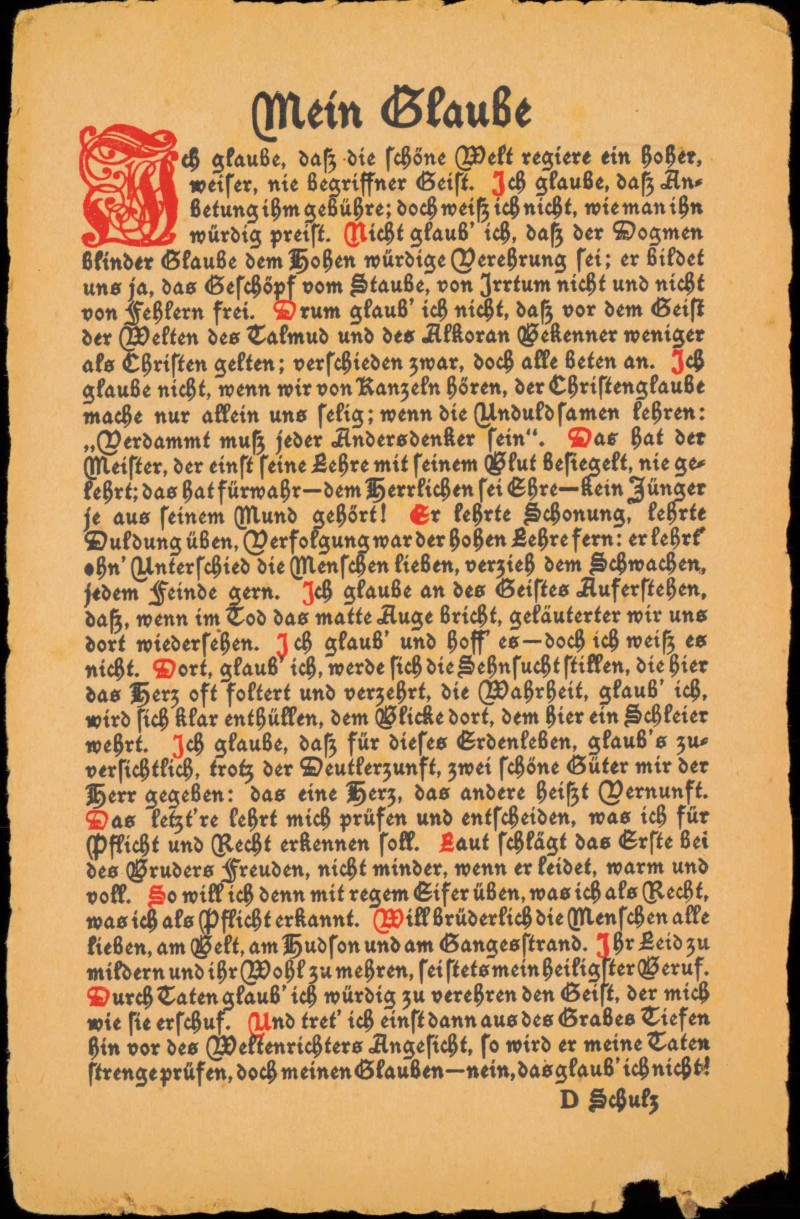 Mein Glaube
Ich glaube, daß die schöne Welt regiere ein hoher,
weiser, nie begriffner Geist. Ich glaube, daß An-
betung ihm gebühre; doch weiß ich nicht, wie man ihn
würdig preist. Nicht glaub' ich, daß der Dogmen
blinder Glaube dem Hohen würdige Verehrung sei; er bildet
uns ja, das Geschöpf vom Staube, von Irrtum nicht und nicht
von Fehlern frei. Drum glaub' ich nicht, daß vor dem Geist
der Welten des Talmud und des Alkoran Bekenner weniger
als Christen gelten; verschieden zwar, doch alle beten an. Ich
glaube nicht, wenn wir von Kanzeln hören, der Christenglaube
mache nur allein uns selig; wenn die Unduldsamen lehren:
„Verdammt muß jeder Andersdenker sein“. Das hat der
Meister, der einst seine Lehre mit seinem Blut besiegelt, nie ge-
lehrt; das hat fürwahr—dem Herrlichen sei Ehre—kein Jünger
je aus seinem Mund gehört! Er lehrte Schonung, lehrte
Duldung üben, Verfolgung war der hohen Lehre fern: er lehrt'
ohn' Unterschied die Menschen lieben, verzieh dem Schwachen,
jedem Feinde gern. Ich glaube an des Geistes Auferstehen,
daß, wenn im Tod das matte Auge bricht, geläuterter wir uns
dort wiedersehen. Ich glaub' und hoff' es—doch ich weiß es
nicht. Dort, glaub' ich, werde sich die Sehnsucht stillen, die hier
das Herz oft foltert und verzehrt, die Wahrheit, glaub' ich,
wird sich klar enthüllen, dem Blicke dort, dem hier ein Schleier
wehrt. Ich glaube, daß für dieses Erdenleben, glaub's zu-
versichtlich, trotz der Deutlerzunft, zwei schöne Güter mir der
Herr gegeben: das eine Herz, das andere heißt Vernunft.
Das letzt're lehrt mich prüfen und entscheiden, was ich für
Pflicht und Recht erkennen soll. Laut schlägt das Erste bei
des Bruders Freuden, nicht minder, wenn er leidet, warm und
voll. So will ich denn mit regem Eifer üben, was ich als Recht,
was ich als Pflicht erkannt. Will brüderlich die Menschen alle
lieben, am Belt, am Hudson und am Gangesstrand. Ihr Leid zu
mildern und ihr Wohl zu mehren, sei stets mein heiligster Beruf.
Durch Taten glaub' ich würdig zu verehren den Geist, der mich
wie sie erschuf. Und tret' ich einst dann aus des Grabes Tiefen
hin vor des Weltenrichters Angesicht, so wird er meine Taten
strenge prüfen, doch meinen Glauben—nein, das glaub' ich nicht!
D Schulz